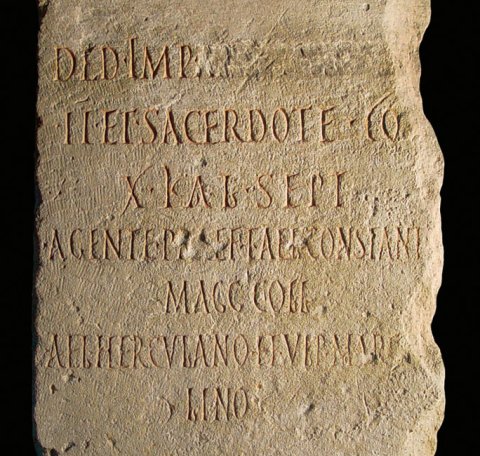 DED·IMP
II ET SACERDOTE·CO
X·KAL·SEPT
AGENTE PRAEF T AEL CONSTANT
MAGG COLL
AEL HERCVLANO·ET VLP·MARCE
LINO